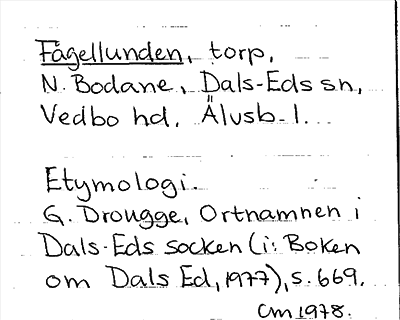 Fågellunden, torp,
N. Bodane, Dals-Eds sn,
Vedbo hd, Älvsb. l.
Etymologi.
G. Drougge, Ortnamnen i
Dals-Eds socken (i: Boken
om Dals Ed, 1977), s. 669.
Cm 1978.